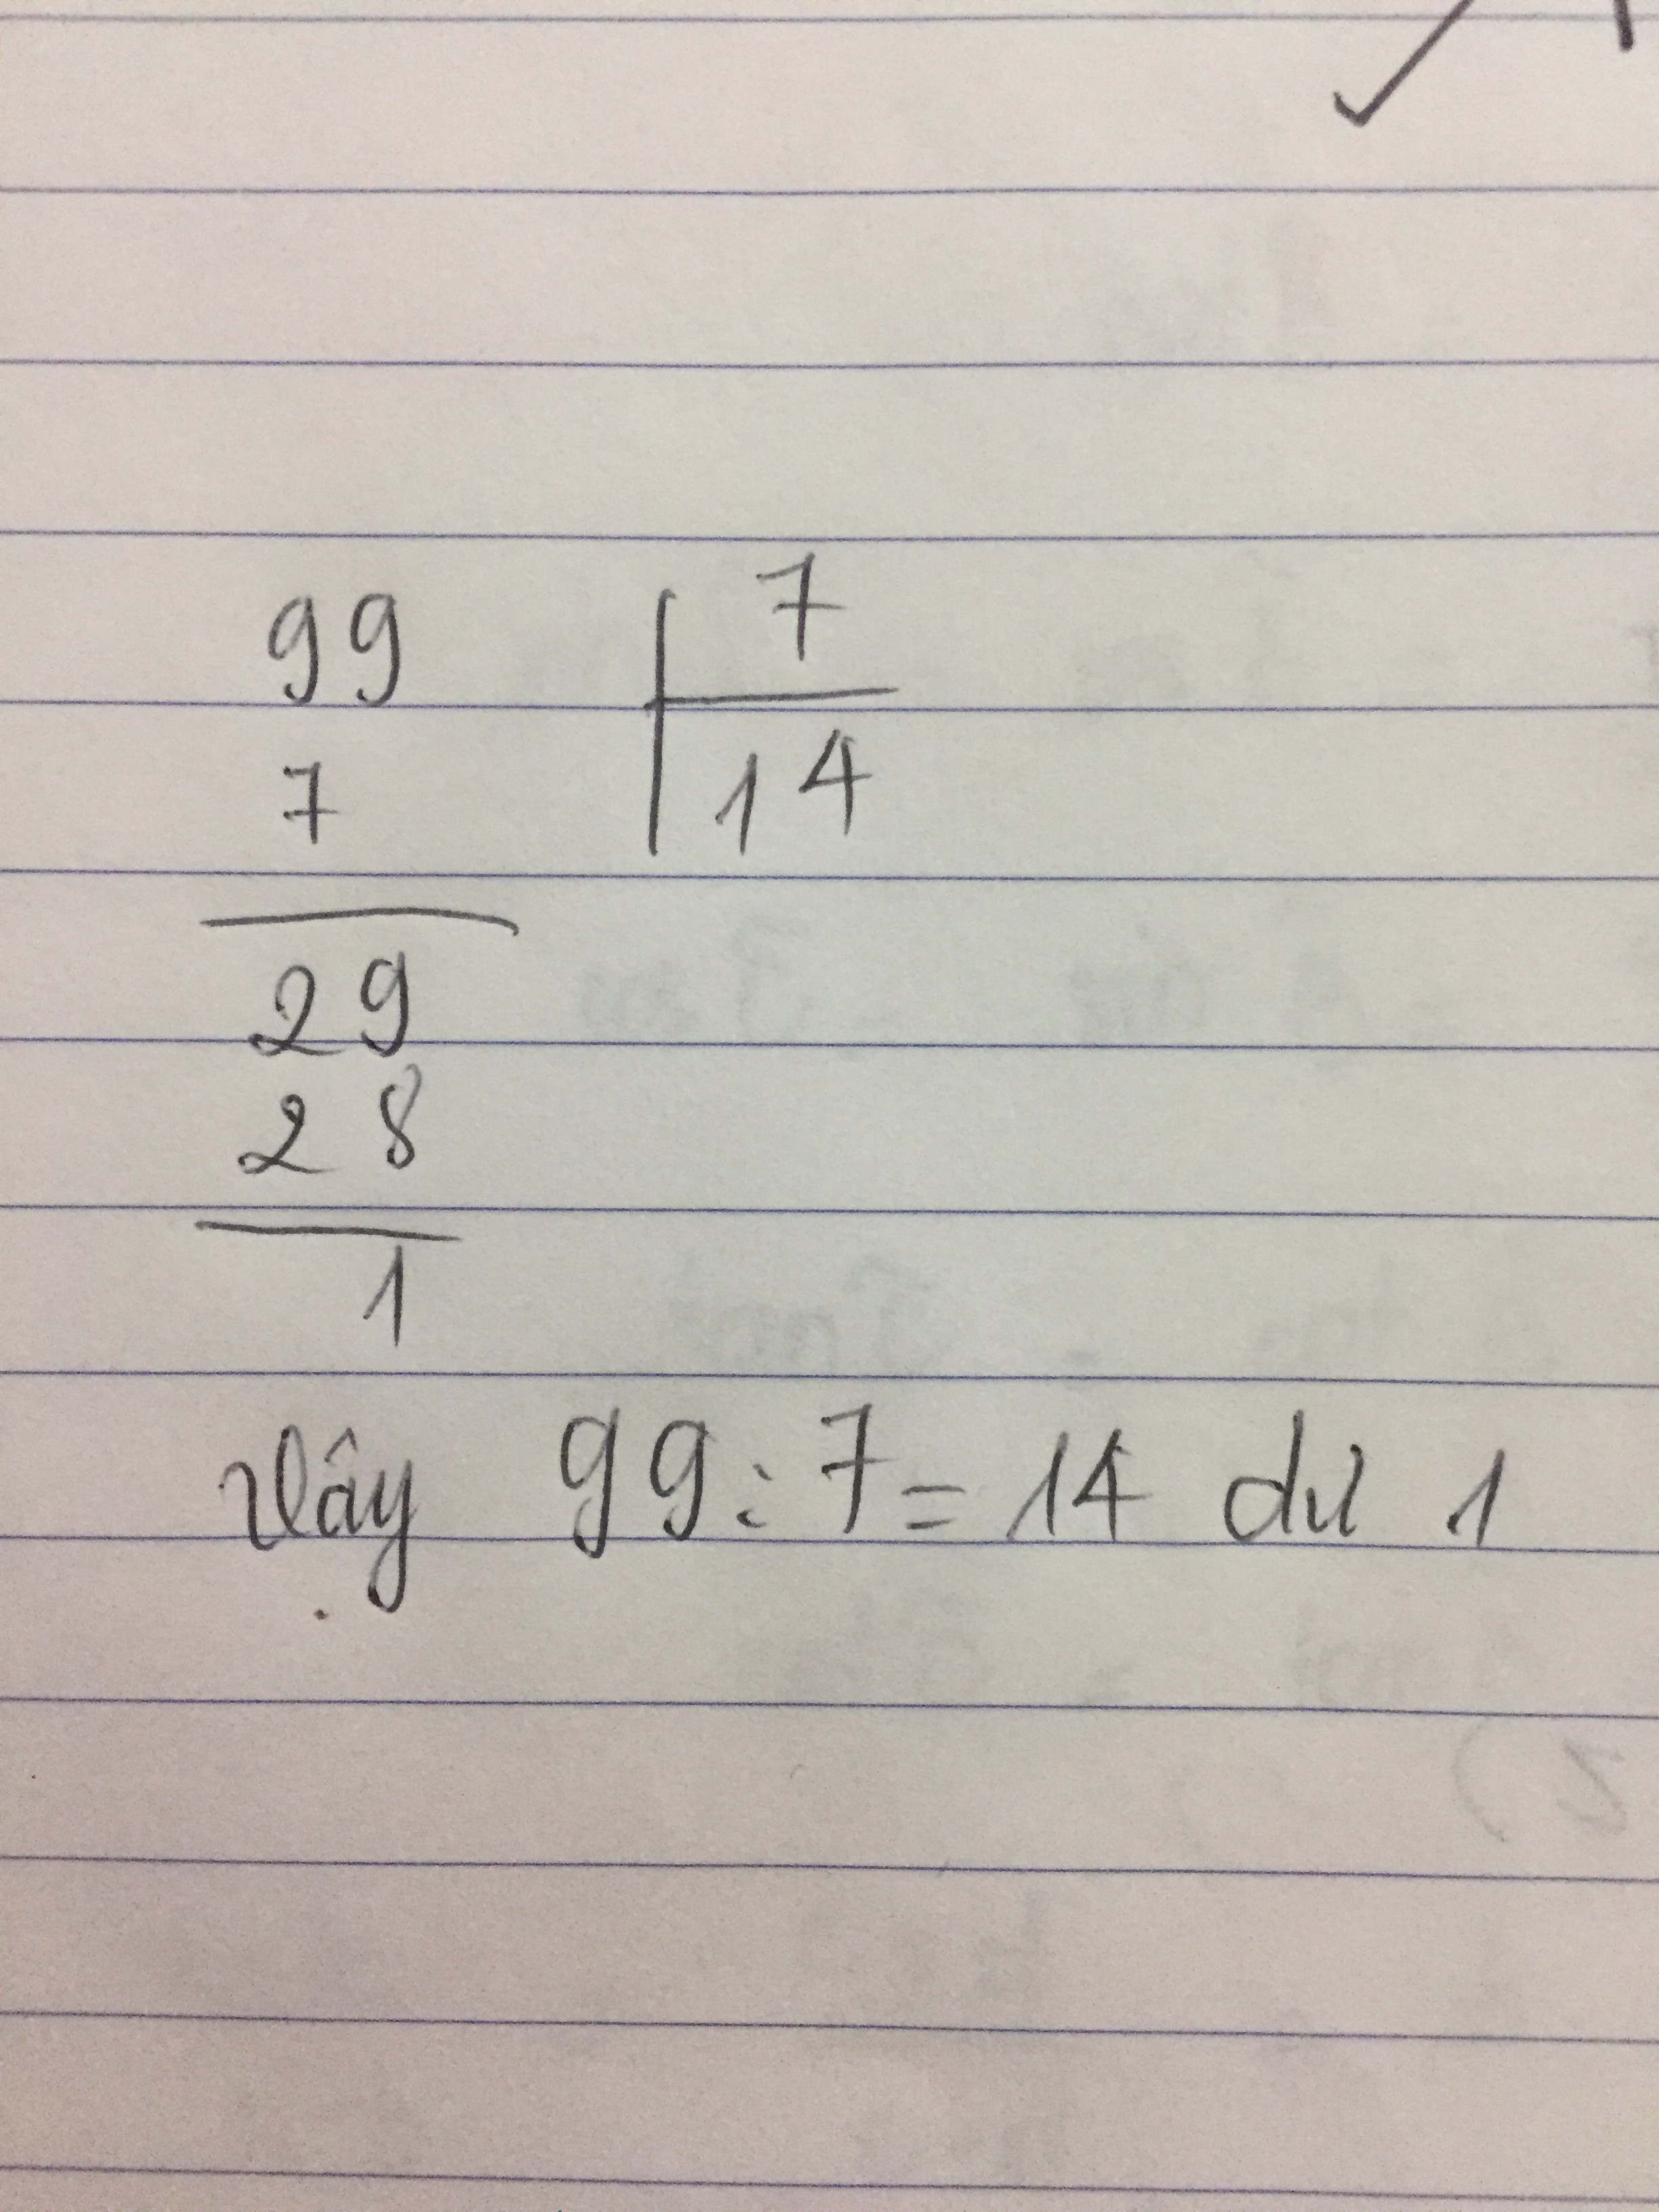 99 7
7 14
29
28
1
Vậy 99 : 7 = 14 dư 1